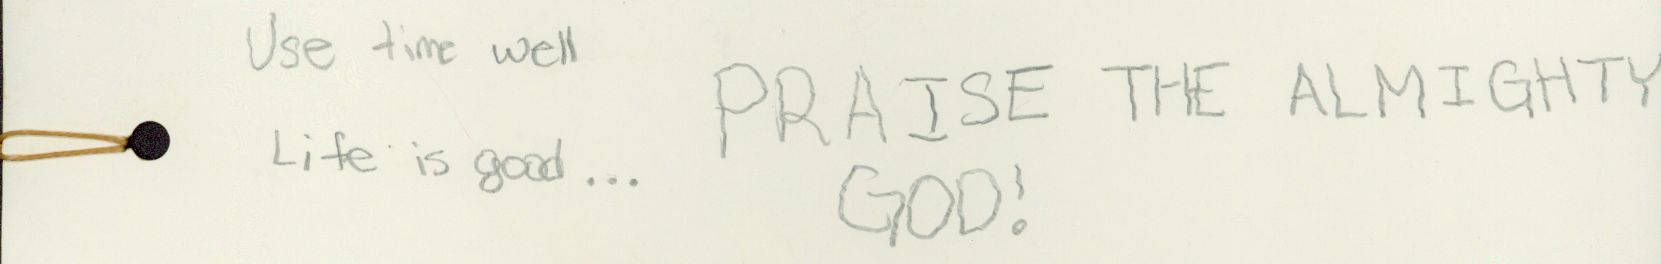 Use time well
Life is good...
PRAISE THE ALMIGHTY
GOD!